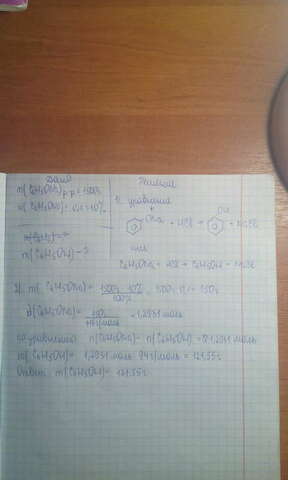 Дано
Решение
m(C6H5ONa)р-р = 1500г
ω(C6H5ONa) = 10%
m(C6H5OH) - ?
1. уравнения
ONa + HCl → OH + NaCl
или
C6H5ONa + HCl → C6H5OH + NaCl
2) m(C6H5ONa) = 1500г · 10% / 100% = 1500 · 0,1 = 150г
(C6H5ONa) = 150г / 116г/моль = 1,2931 моль
по уравнению n(C6H5ONa) = n(C6H5OH) = 1,2931 моль
m(C6H5OH) = 1,2931 моль · 94г/моль = 121,55г
Ответ: m(C6H5OH) = 121,55г